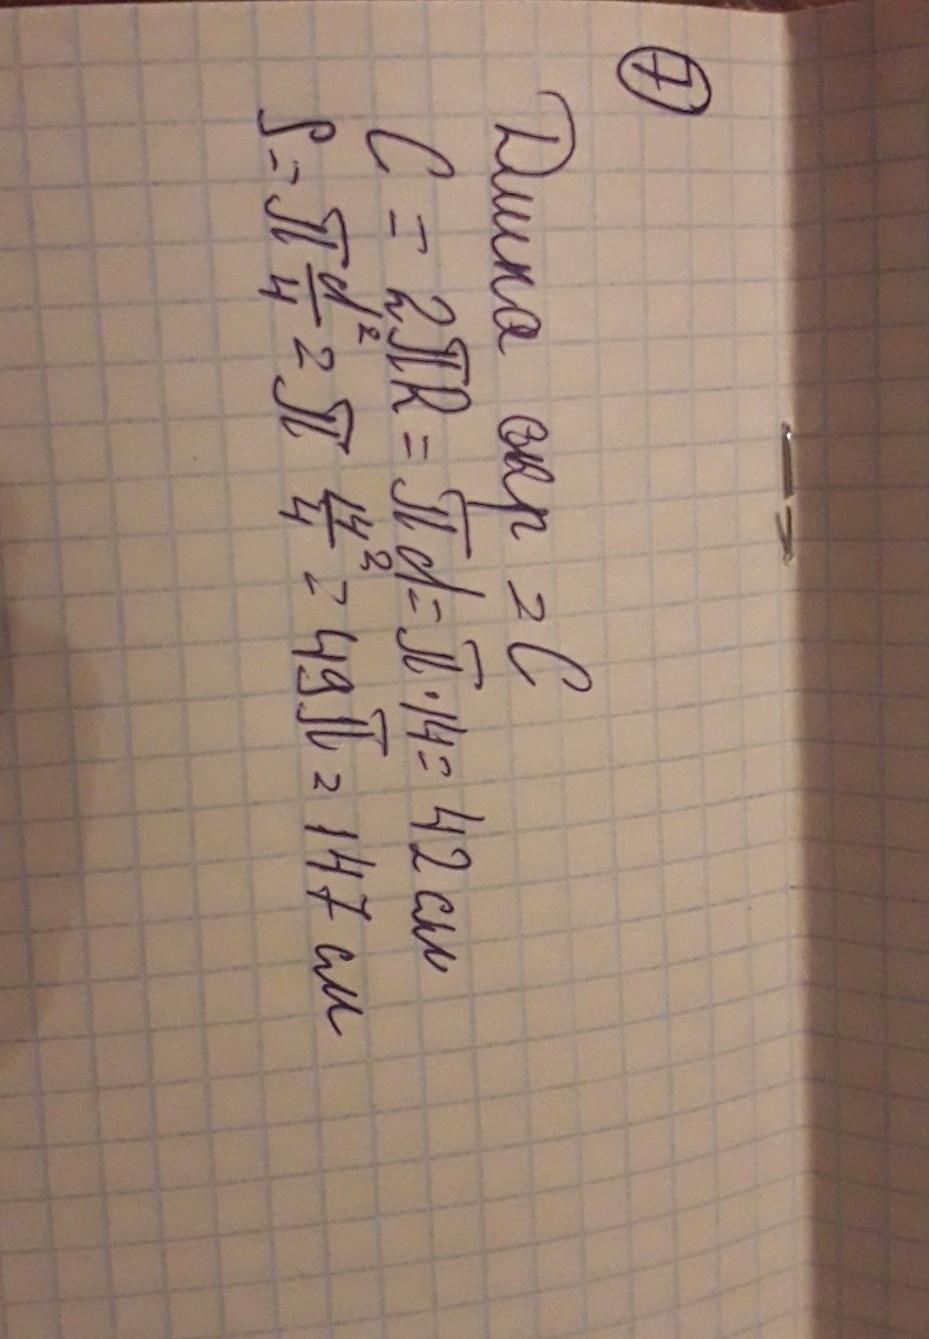 7
Длина окр = C
C = 2πR = πd = π·14 = 42 см
S = π d²/4 = π 14²/4 = 49π = 147 см